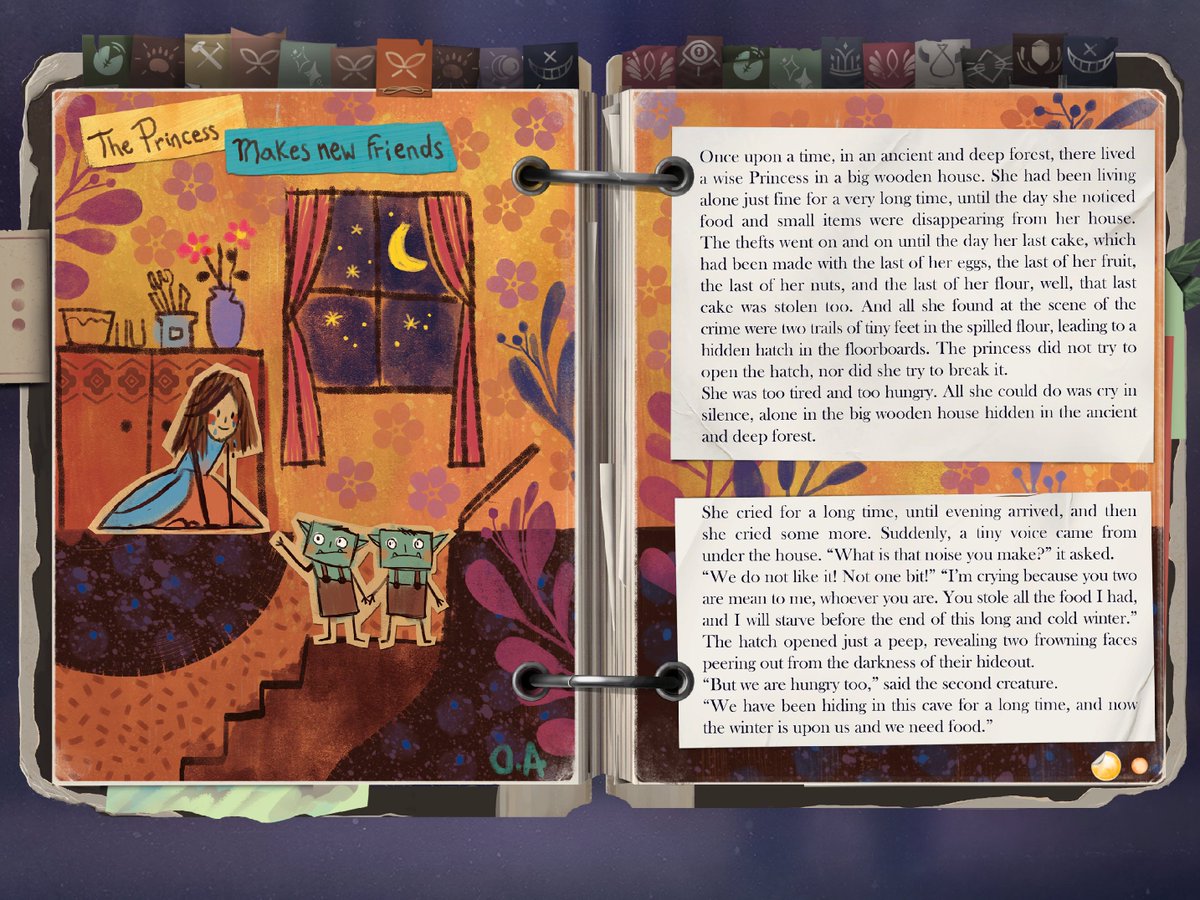 The Princess
Makes new friends
O.A
Once upon a time, in an ancient and deep forest, there lived
a wise Princess in a big wooden house. She had been living
alone just fine for a very long time, until the day she noticed
food and small items were disappearing from her house.
The thefts went on and on until the day her last cake, which
had been made with the last of her eggs, the last of her fruit,
the last of her nuts, and the last of her flour, well, that last
cake was stolen too. And all she found at the scene of the
crime were two trails of tiny feet in the spilled flour, leading to a
hidden hatch in the floorboards. The princess did not try to
open the hatch, nor did she try to break it.
She was too tired and too hungry. All she could do was cry in
silence, alone in the big wooden house hidden in the ancient
and deep forest.
She cried for a long time, until evening arrived, and then
she cried some more. Suddenly, a tiny voice came from
under the house. “What is that noise you make?” it asked.
“We do not like it! Not one bit!” “I’m crying because you two
are mean to me, whoever you are. You stole all the food I had,
and I will starve before the end of this long and cold winter.”
The hatch opened just a peep, revealing two frowning faces
peering out from the darkness of their hideout.
“But we are hungry too,” said the second creature.
“We have been hiding in this cave for a long time, and now
the winter is upon us and we need food.”